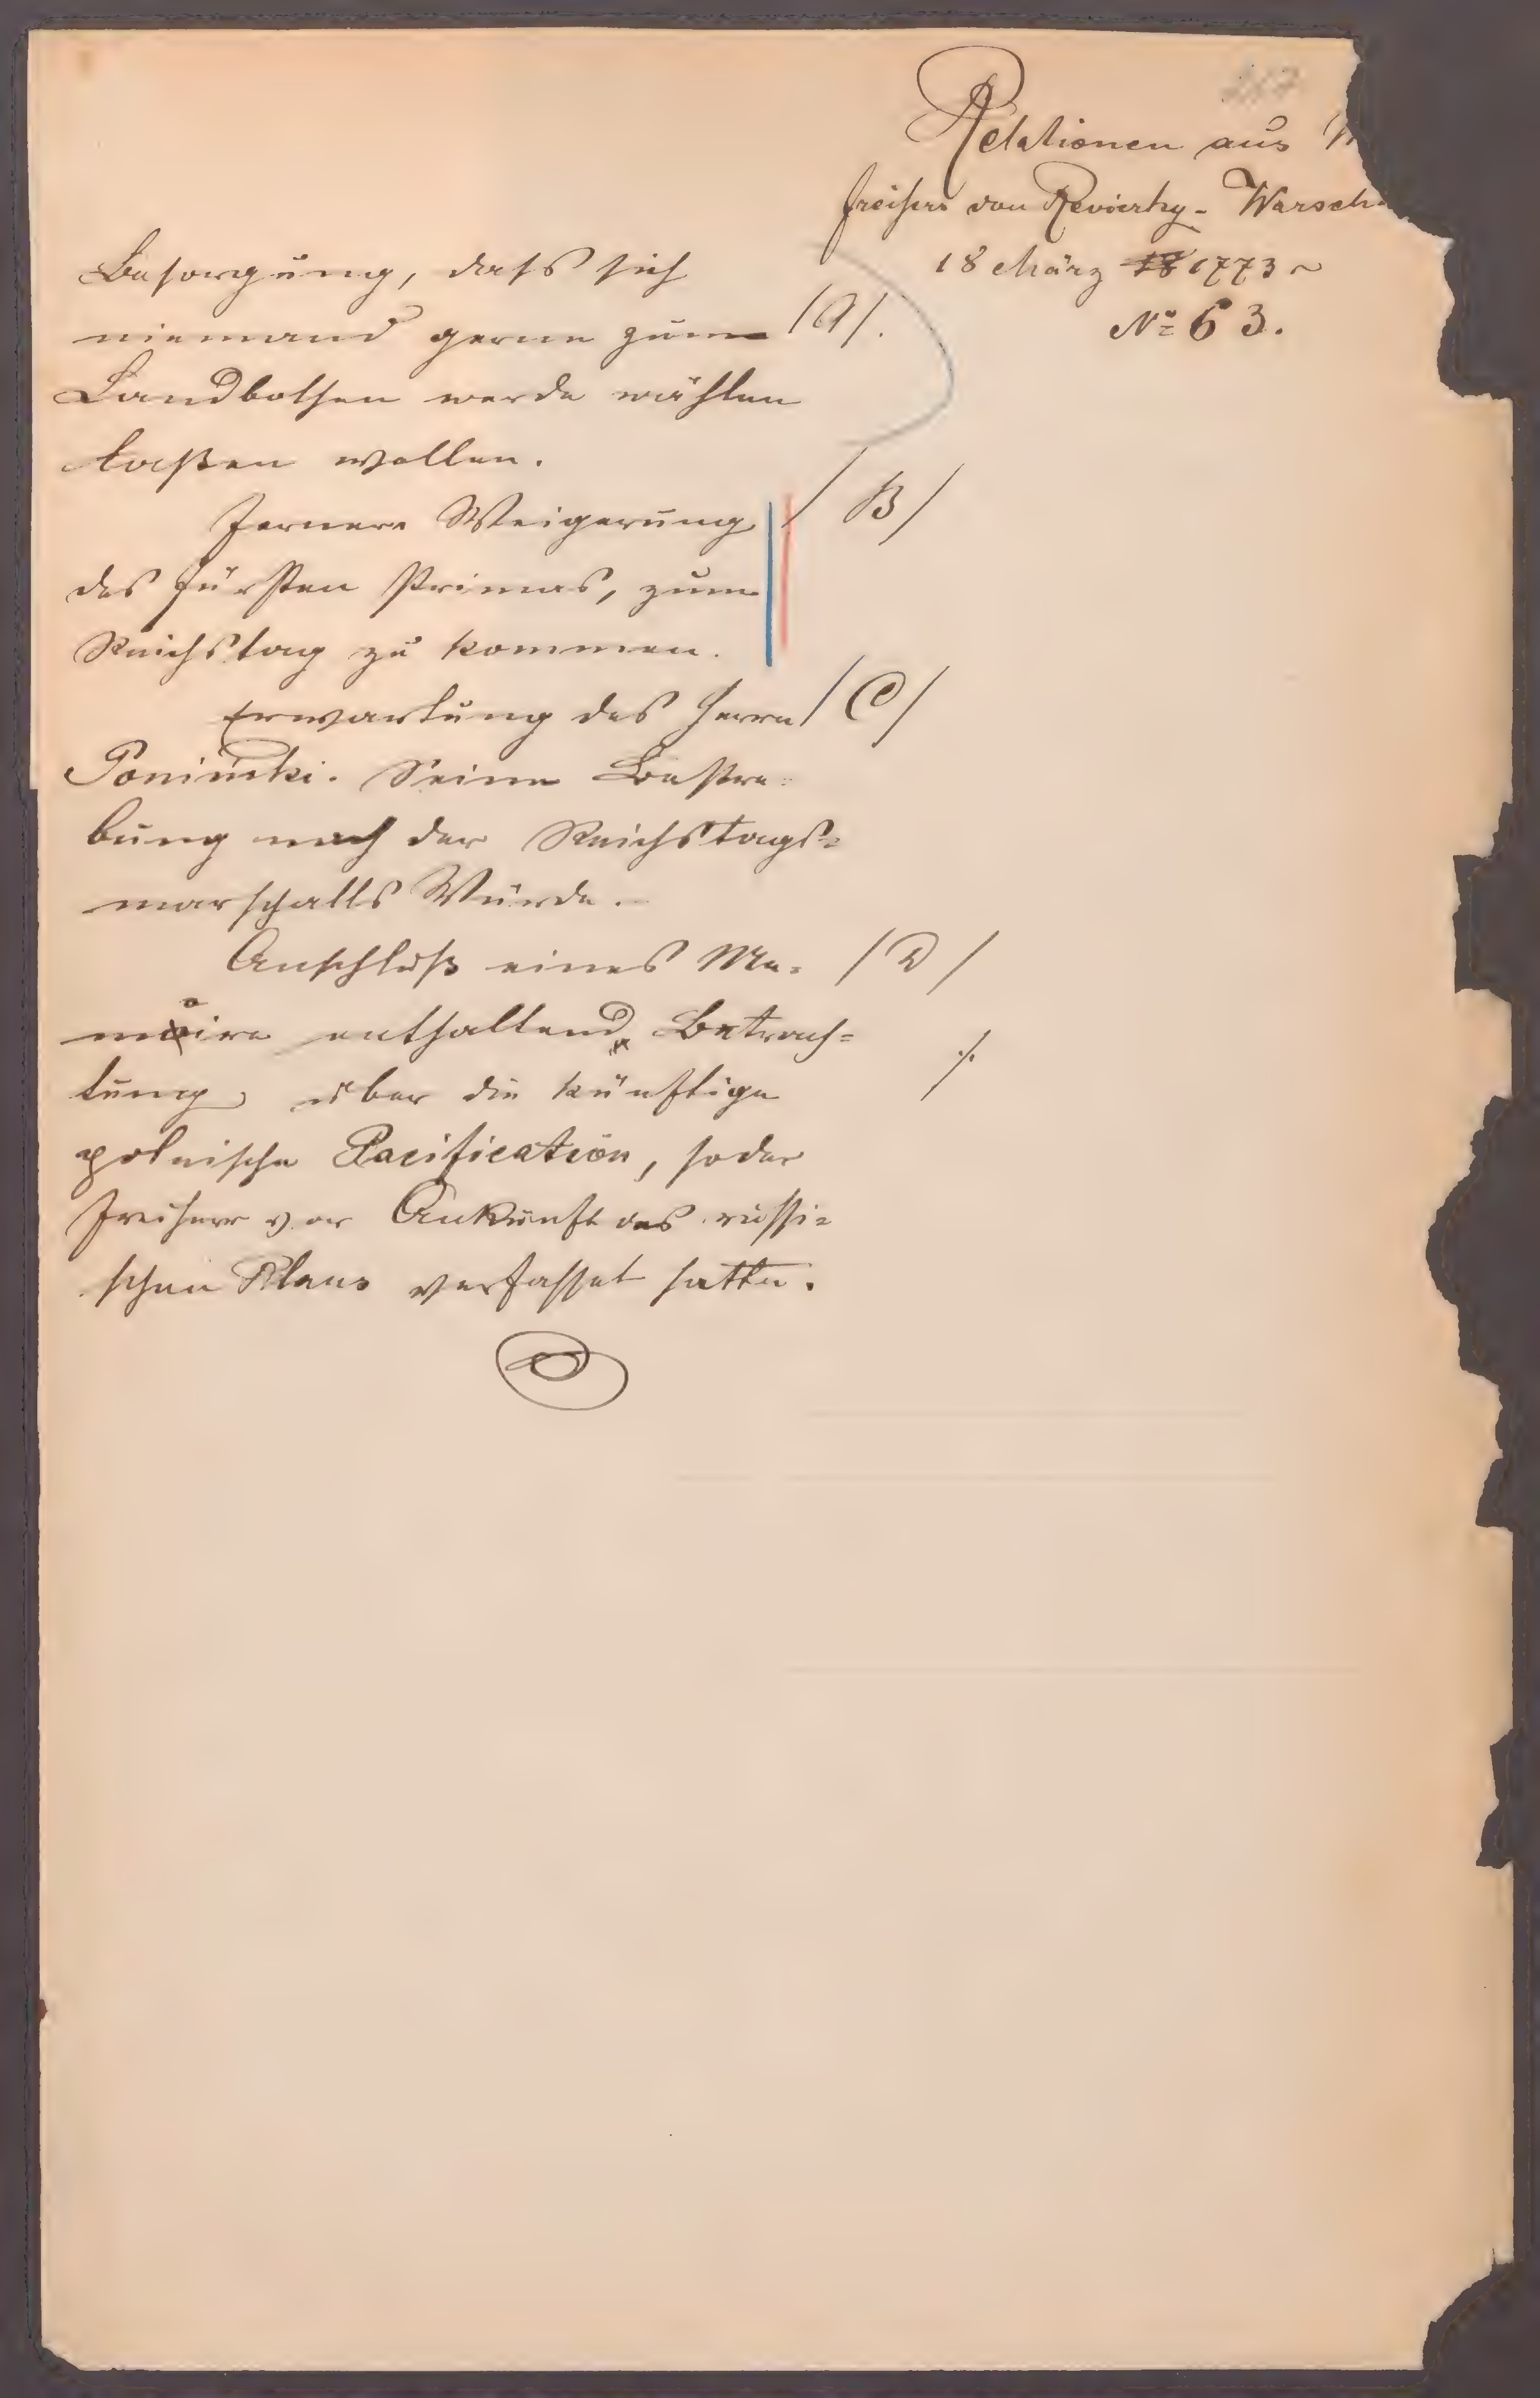 Relationen aus
freiherr von Revierky - Warsch
18 März 18 1773 ~
№ 63.
Besorgüng, dass sich
niemand gerne zum /A/.
Landbothen werde wählen
laßen wollen.
Fernere Weigerung /B/
des Fürsten Primas, zum
Reichstag zu kommen.
Erwartung des Herrn /C/
Poninski. Seine Bestre-
bung nach der Reichstags-
marschalls Würde.
Anschluß eines Me- /D/
moire enthaltend Betrach-
tung über die künftige ./.
polnische Pacification, so der
Freiherr vor Ankunft des russi-
schen Plans verfasset hatte.